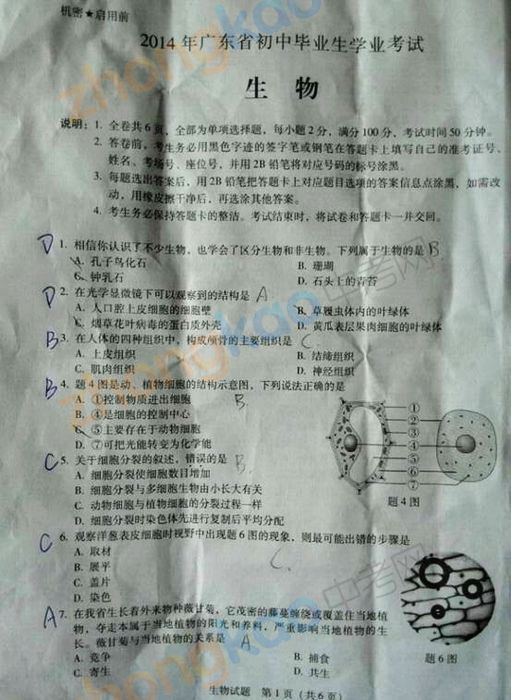 机密★启用前
2014年广东省初中毕业生学业考试
生 物
说明：1. 全卷共6页，全部为单项选择题，每小题2分，满分100分，考试时间50分钟。
2. 答卷前，考生务必用黑色字迹的签字笔或钢笔在答题卡上填写自己的准考证号、
姓名、考场号、座位号，并用2B铅笔将对应号码的标号涂黑。
3. 每题选出答案后，用2B铅笔把答题卡上对应题目选项的答案信息点涂黑，如需改
动，用橡皮擦干净后，再选涂其他答案。
4. 考生务必保持答题卡的整洁。考试结束时，将试卷和答题卡一并交回。
D 1. 相信你认识了不少生物，也学会了区分生物和非生物。下列属于生物的是 B
A. 孔子鸟化石 B. 珊瑚
C. 钟乳石 D. 石头上的青苔
D 2. 在光学显微镜下可以观察到的结构是 A
A. 人口腔上皮细胞的细胞壁 B. 草履虫体内的叶绿体
C. 烟草花叶病毒的蛋白质外壳 D. 黄瓜表层果肉细胞的叶绿体
B 3. 在人体的四种组织中，构成颅骨的主要组织是 C
A. 上皮组织 B. 结缔组织
C. 肌肉组织 D. 神经组织
B 4. 题4图是动、植物细胞的结构示意图，下列说法正确的是
A. ①控制物质进出细胞 B.
B. ④是细胞的控制中心
C. ⑤主要存在于动物细胞
D. ⑦可把光能转变为化学能
① ② ③ ④ ⑤ ⑥ ⑦
题4图
C 5. 关于细胞分裂的叙述，错误的是 B.
A. 细胞分裂使细胞数目增加
B. 细胞分裂与多细胞生物由小长大有关
C. 动物细胞与植物细胞的分裂过程一样
D. 细胞分裂时染色体先进行复制后平均分配
C 6. 观察洋葱表皮细胞时视野中出现题6图的现象，则最可能出错的步骤是
A. 取材
B. 展平 C.
C. 盖片
D. 染色
题6图
A 7. 在我省生长着外来物种薇甘菊，它茂密的藤蔓缠绕或覆盖住当地植
物，夺走本属于当地植物的阳光和养料，严重影响当地植物的生
长。薇甘菊与当地植物的关系是 A
A. 竞争 B. 捕食
C. 寄生 D. 共生
生物试题 第1页（共6页）
zhongkao 中考网